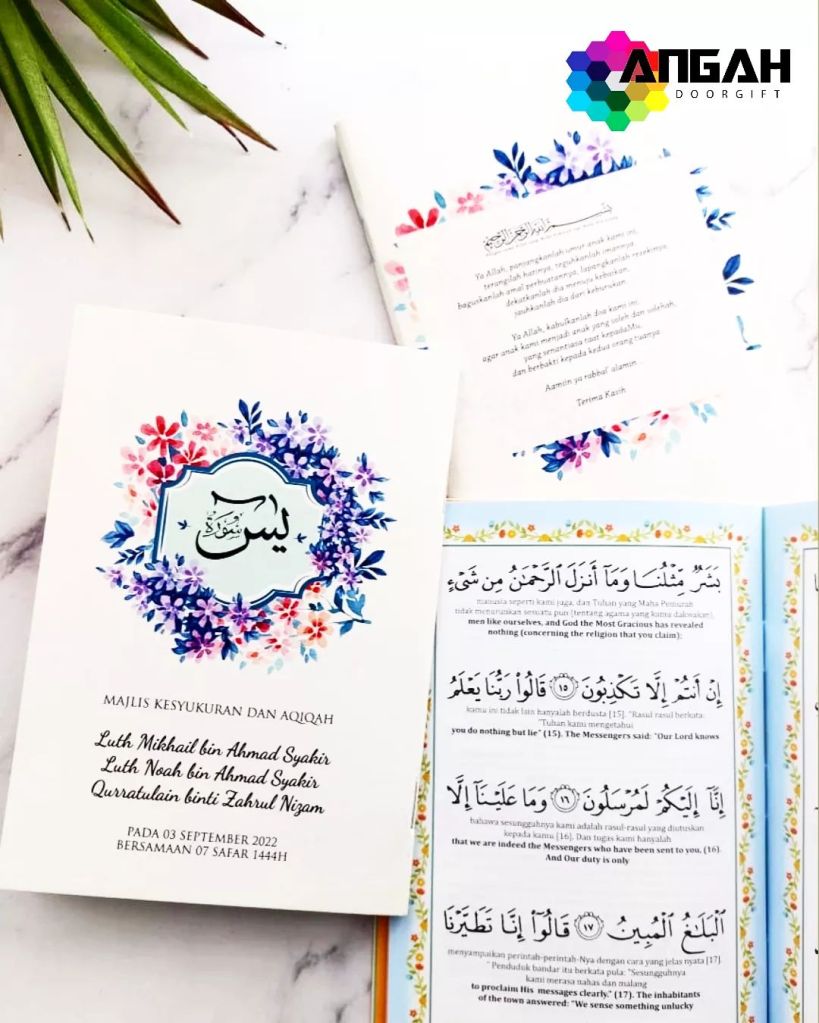 ANGAH
DOORGIFT
بسم الله الرحمن الرحيم
Ya Allah, panjangkanlah umur anak kami ini,
terangilah hatinya, teguhkanlah imannya,
baguskanlah amal perbuatannya, lapangkanlah rezekinya,
dekatkanlah dia menuju kebaikan,
jauhkanlah dia dari keburukan.
Ya Allah, kabulkanlah doa kami ini,
agar anak kami menjadi anak yang soleh dan solehah,
yang senantiasa taat kepadaMu,
dan berbakti kepada kedua orang tuanya
Aamiin ya rabbal' alamin ...
Terima Kasih
سورة يس
MAJLIS KESYUKURAN DAN AQIQAH
Luth Mikhail bin Ahmad Syakir
Luth Noah bin Ahmad Syakir
Qurratulain binti Zahrul Nizam
PADA 03 SEPTEMBER 2022
BERSAMAAN 07 SAFAR 1444H
بَشَرٌ مِّثْلُنَا وَمَآ أَنزَلَ ٱلرَّحْمَٰنُ مِن شَىْءٍ
manusia seperti kami juga, dan Tuhan yang Maha Pemurah
tidak menurunkan sesuatu pun (tentang agama yang kamu dakwakan),
men like ourselves, and God the Most Gracious has revealed
nothing (concerning the religion that you claim);
إِنْ أَنتُمْ إِلَّا تَكْذِبُونَ ١٥ قَالُوا۟ رَبُّنَا يَعْلَمُ
kamu ini tidak lain hanyalah berdusta [15]. "Rasul rasul berkata:
"Tuhan kami mengetahui
you do nothing but lie" (15). The Messengers said: "Our Lord knows
إِنَّآ إِلَيْكُمْ لَمُرْسَلُونَ ١٦ وَمَا عَلَيْنَآ إِلَّا
bahawa sesungguhnya kami adalah rasul-rasul yang diutuskan
kepada kamu [16]. Dan tugas kami hanyalah
that we are indeed the Messengers who have been sent to you, (16).
And Our duty is only
ٱلْبَلَٰغُ ٱلْمُبِينُ ١٧ قَالُوٓا۟ إِنَّا تَطَيَّرْنَا
menyampaikan perintah-perintah-Nya dengan cara yang jelas nyata [17].
" Penduduk bandar itu berkata pula: "Sesungguhnya
kami merasa nahas dan malang
to proclaim His messages clearly." (17). The inhabitants
of the town answered: "We sense something unlucky